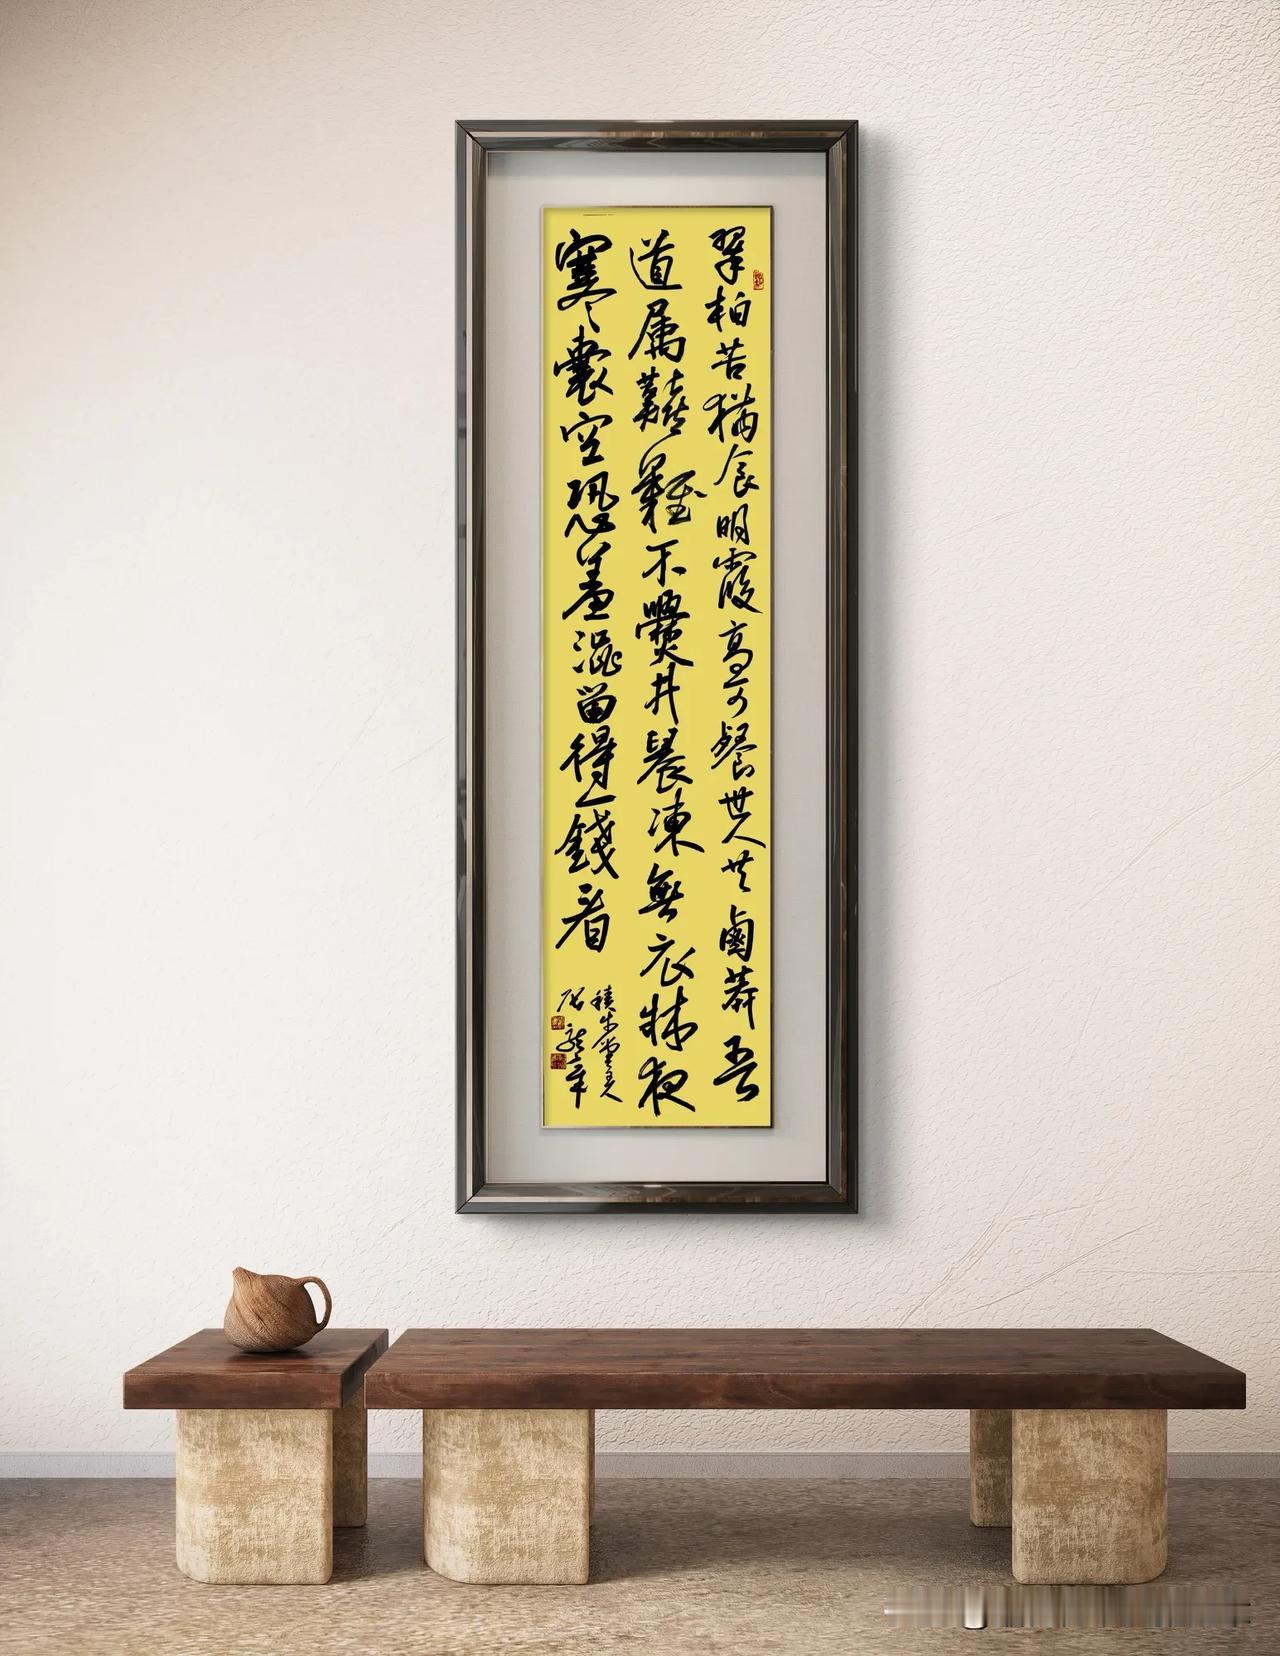 翠柏苦猶食明霞高可餐世人共鹵莽吾
道属艱難不爨井晨凍無衣牀夜
寒囊空恐羞澀留得一錢看